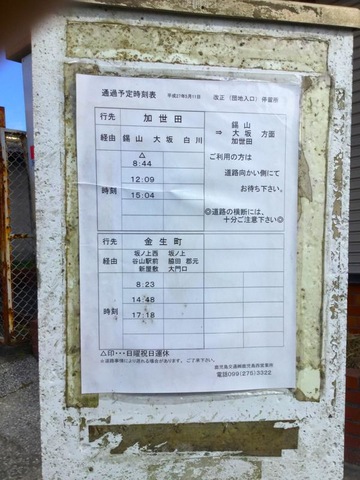 通過予定時刻表 平成27年5月11日 改正 (団地入口) 停留所
行先 加世田
経由 錫山 大坂 白川
時刻
△
8:44
12:09
15:04
錫山
⇒ 大坂 方面
加世田
ご利用の方は
道路向かい側にて
お待ち下さい。
◎道路の横断には、
十分ご注意下さい◎
行先 金生町
経由
坂ノ上西 坂ノ上
谷山駅前 脇田 郡元
新屋敷 大門口
時刻
8:23
14:48
17:18
△印・・・日曜祝日運休
※道路事情により遅れる場合があります。 ご了承下さい。
鹿児島交通㈱鹿児島西営業所
電話099(275)3322